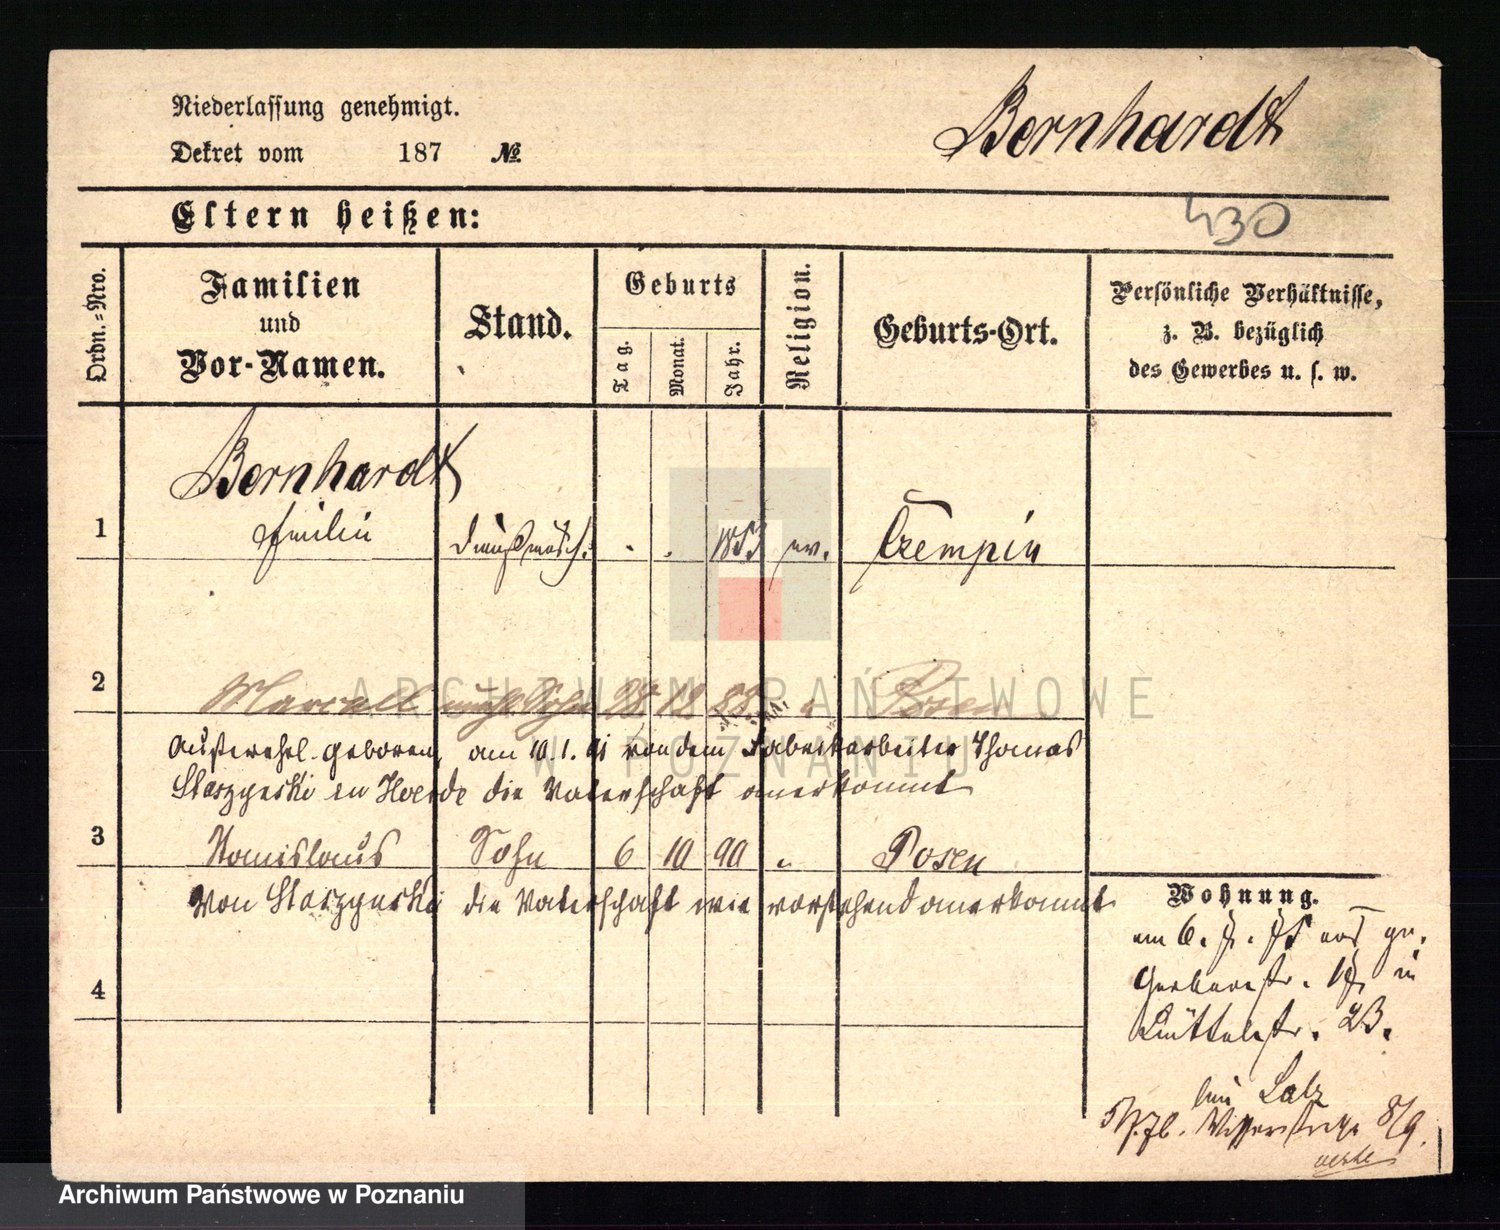 Niederlassung genehmigt.
Dekret vom 187 №
Bernhardt
430
Eltern heißen:
Ordn.-Nro.
Familien
und
Vor-Namen.
Stand.
Geburts
Tag.
Monat.
Jahr.
Religion.
Geburts-Ort.
Persönliche Verhältnisse,
z. B. bezüglich
des Gewerbes u. s. w.
Bernhardt
1 Emilie Dienstmädch. 1853 ev. Czempin
2 Marcell unehl. Sohn 28 12 88 " Posen
Außerehel. geboren, am 10.1.91 von dem Fabrikarbeiter Thomas
in Hoerde die Vaterschaft anerkannt
3 Stanislaus Sohn 6 10 90 " Posen
Von die Vaterschaft wie vorstehend anerkannt
Wohnung.
4
Gerberstr. in
Büttelstr. 23.
bei
8/9.
ARCHIWUM PAŃSTWOWE
W POZNANIU
Archiwum Państwowe w Poznaniu